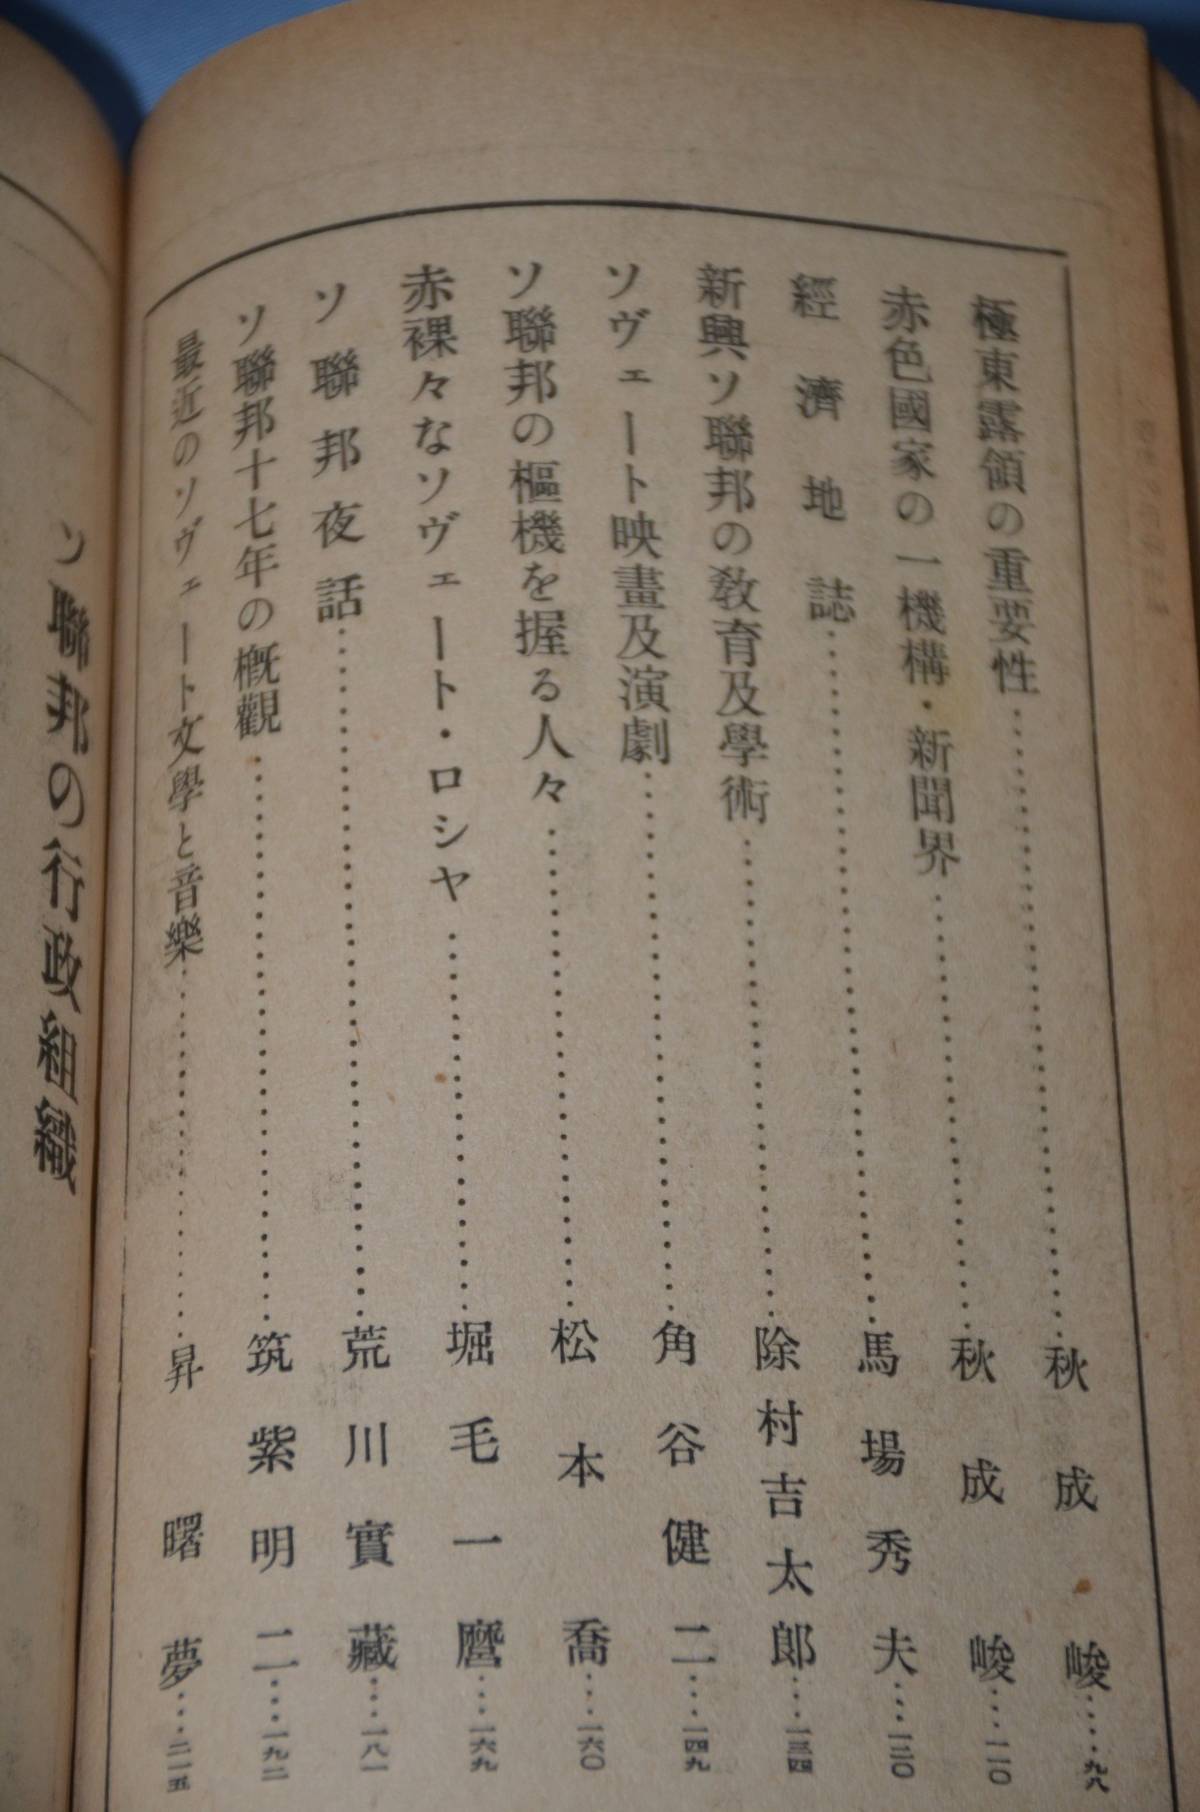 極東露領の重要性…………秋成峻……九八
赤色國家の一機構・新聞界…………秋成峻……一一〇
經濟地誌…………馬場秀夫……一二〇
新興ソ聯邦の教育及學術…………除村吉太郎……一三四
ソヴェート映畫及演劇…………角谷健二……一四九
ソ聯邦の樞機を握る人々…………松本喬……一六〇
赤裸々なソヴェート・ロシヤ…………堀毛一麿……一六九
ソ聯邦夜話…………荒川實藏……一八一
ソ聯邦十七年の概觀…………筑紫明二……一九二
最近のソヴェート文學と音樂…………昇曙夢……二一五
ソ聯邦の行政組織